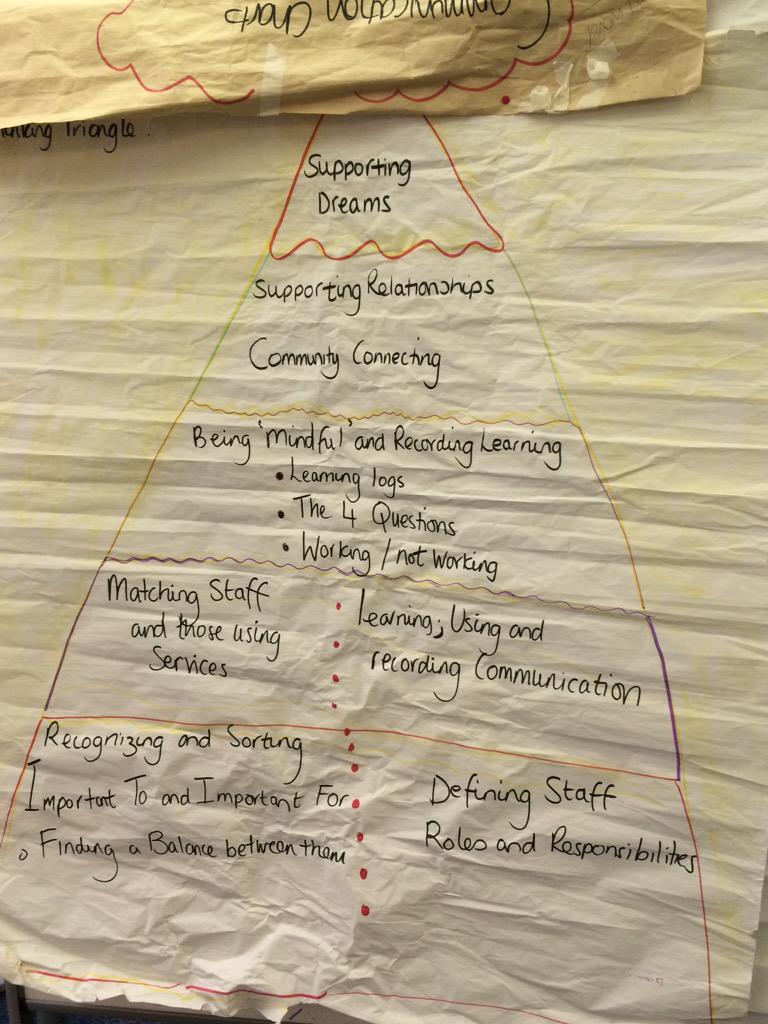 Communication Charts
Triangle.
Supporting
Dreams
Supporting Relationships
Community Connecting
Being 'Mindful' and Recording Learning
• Learning logs
• The 4 Questions
• Working / not Working
Matching Staff
and those using
Services
Learning, Using and
recording Communication
Recognizing and Sorting
Important To and Important For
o Finding a Balance between them
Defining Staff
Roles and Responsibilities